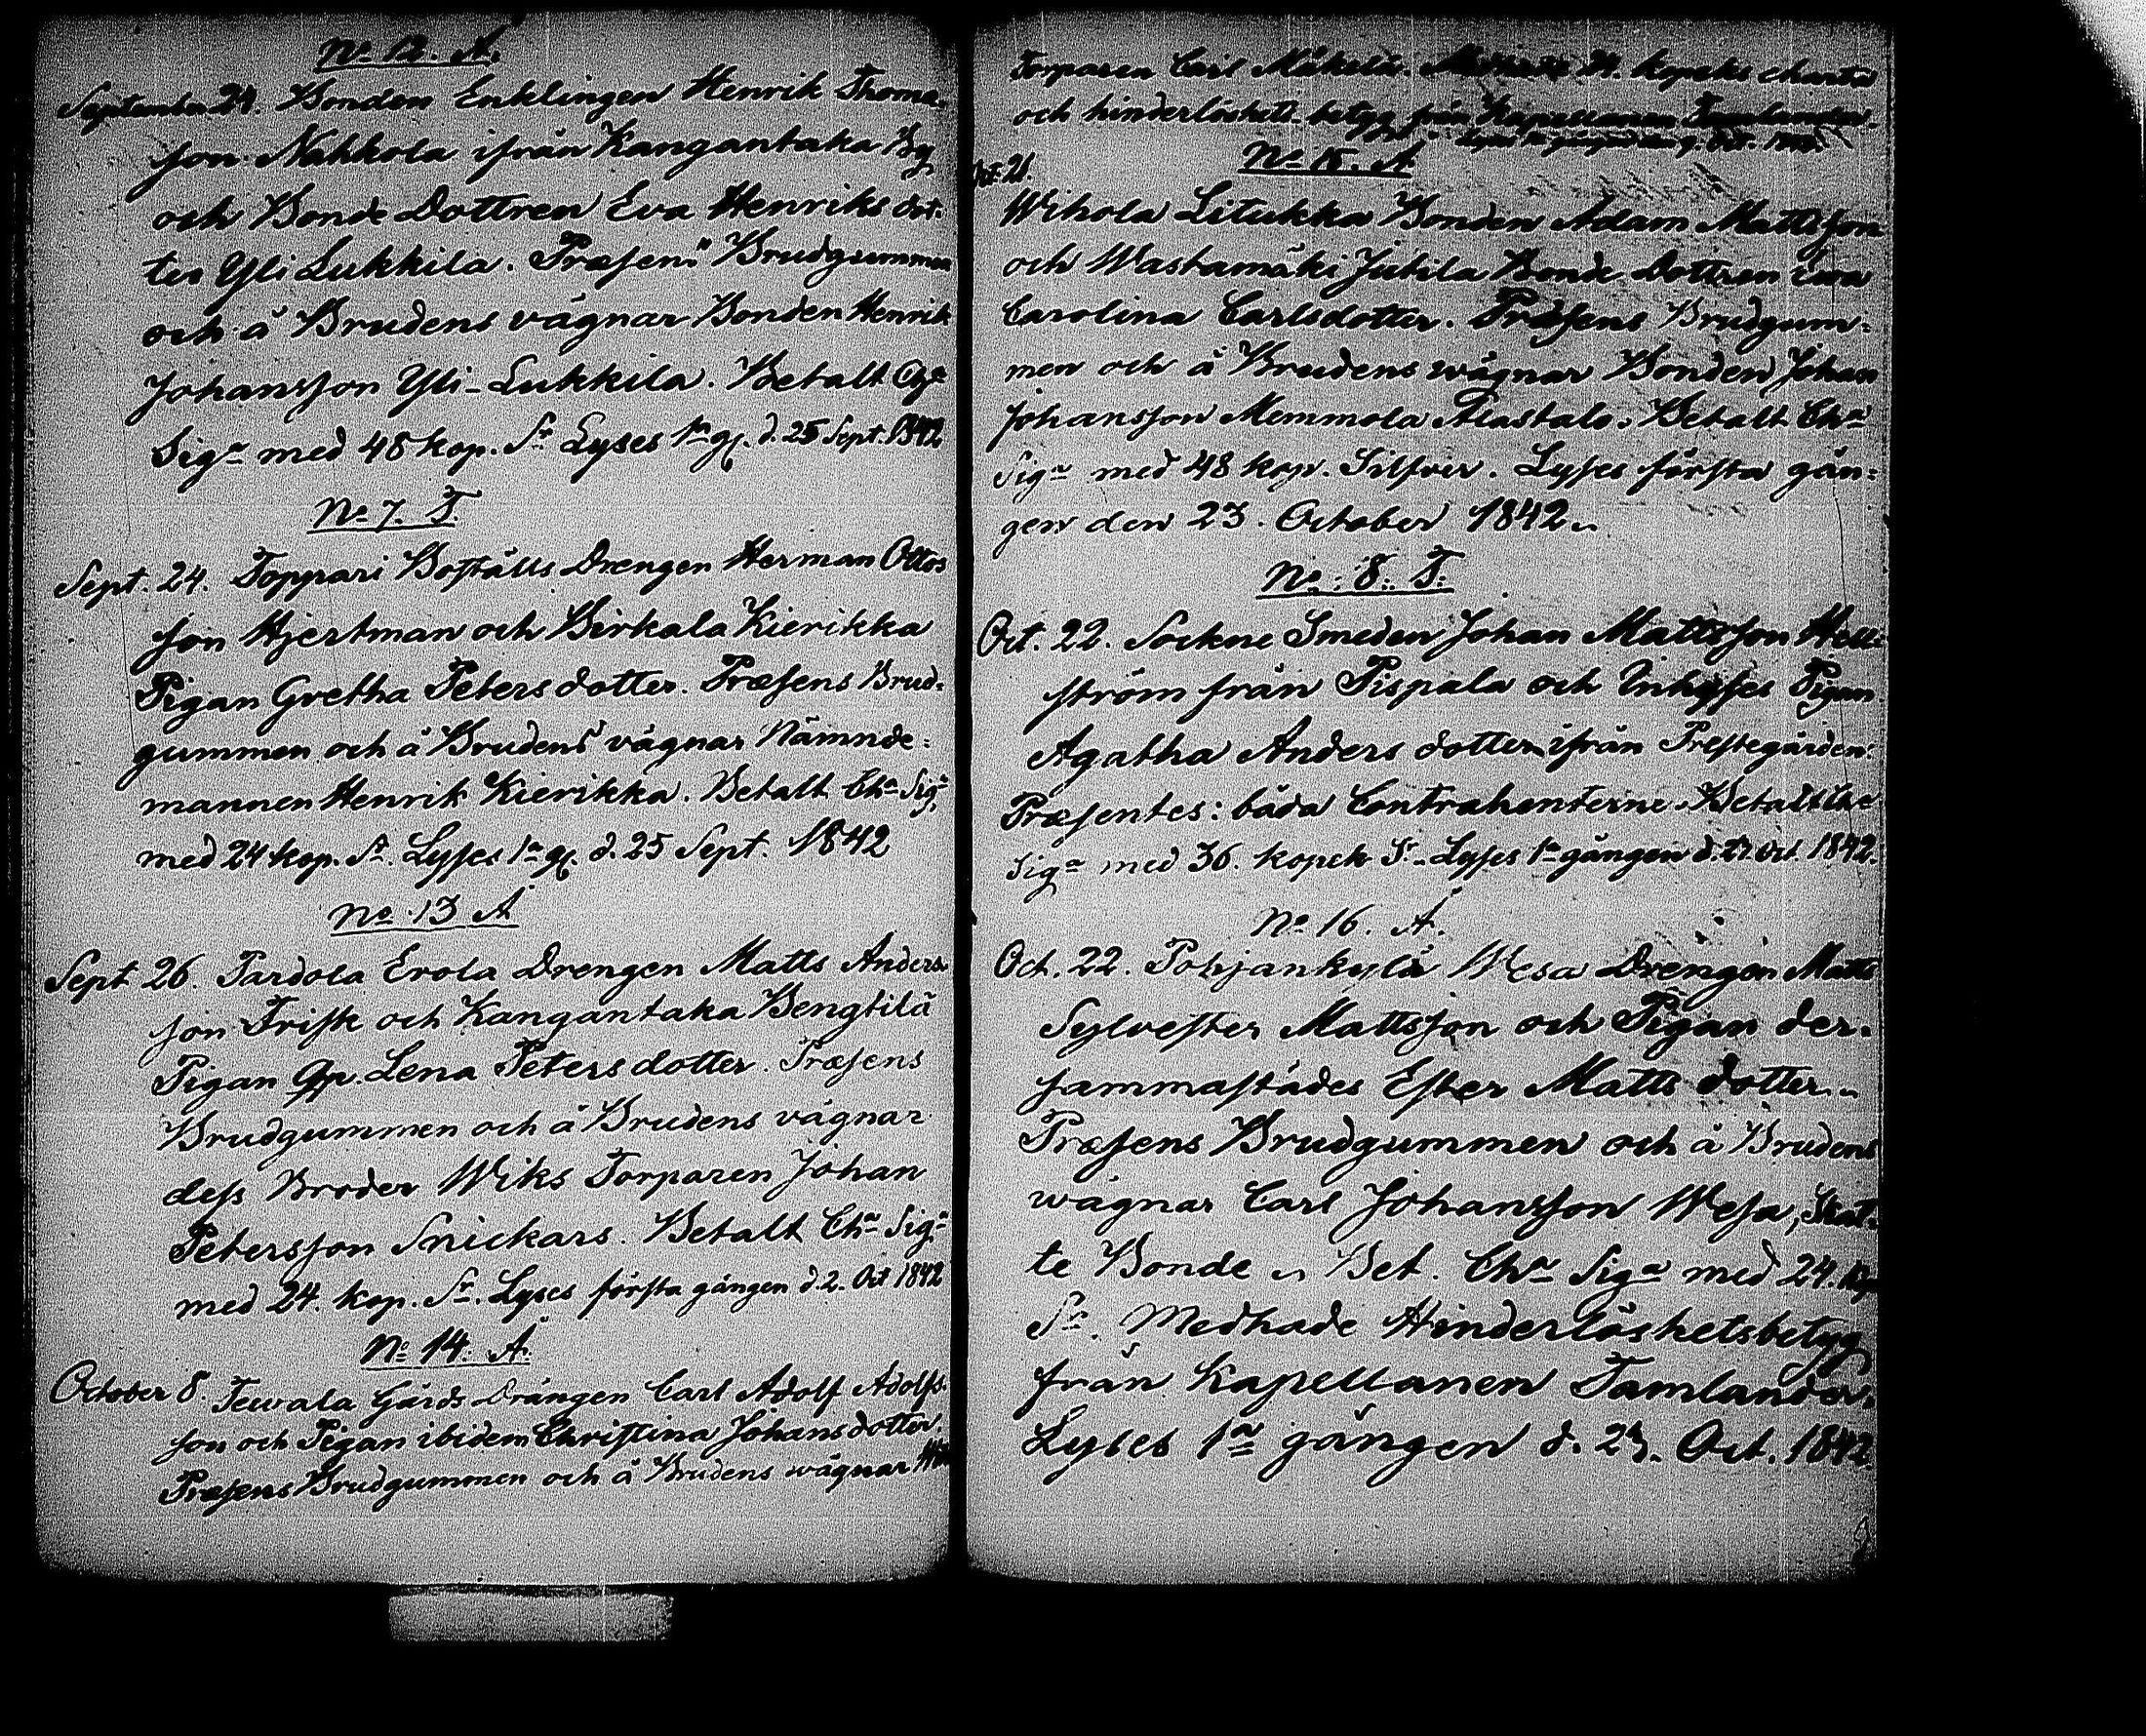 No 12. A.
September 24. Bonden Enklingen Henrik Thoma-
son Nahkola ifrån Kangantaka By
och Bonde Dottren Eva Henriks dot-
ter Yli Lukkila. Præsens Brudgummen
och å Brudens vägnar Bonden Henrik
Johansson Yli-Lukkila. Betalt Cha
Siga med 48 kop. Sr Lyses 1a g. d. 25 Sept. 1842
No 7. T.
Sept. 24. Toppari Boställs Drengen Herman Ottos
son Hjertman och Birkala Kierikka
Pigan Gretha Petersdotter. Præsens Brud-
gummen och å Brudens vägnar Nämnde-
mannen Henrik Kierikka. Betalt Cha Siga
med 24 kop. Sr. Lyses 1a g. d. 25 Sept. 1842
No 13 A
Sept 26. Pardola Erola Drengen Matts Anders
son Frisk och Kangantaka Bengtilä
Pigan Lena Petersdotter. Præsens
Brudgummen och å Brudens vägnar
dess Broder Wiks Torparen Johan
Petersson Snickars. Betalt Cha Siga
med 24. kop. Sr. Lyses första gången d. 2. Oct 1842
No 14. A.
October 8. Tewala Gårds Drängen Carl Adolf Adolfs-
son och Pigan ibidem Christina Johansdotter.
Præsens Brudgummen och å Brudens wägnar
Torparen Carl Mäkelä. 24. kopeks charta
och hinderlöshets-betyg från Kapellanen Tamlander.
No 15. A
Oct. 21.
Wihola Litukka Bonden Adam Mattsson
och Wastamäki Jutila Bonde Dottren Eva
Carolina Carlsdotter. Præsens Brudgum-
men och å Brudens wägnar Bonden Johan
Johansson Memmola Alastalo. Betalt Cha
Siga med 48 kop. Silfver. Lyses första gån-
gen den 23. October 1842.
No. 8. T.
Oct. 22. Sockne Smeden Johan Mattsson Hell-
ström från Pispala och Inhyses Pigan
Agatha Anders dotter ifrån Prestegården.
Præsentes: båda Contrahenterne. Betalt Cha
Siga med 36. kopek Sr. Lyses 1a gången d. 23 Oct. 1842.
No 16. A.
Oct. 22. Pohjankylä Wesa Drengen Matts
Sylvester Mattsson och Pigan der-
sammastädes Ester Matts dotter.
Præsens Brudgummen och å Brudens
wägnar Carl Johansson Wesa, Skat-
te Bonde. Bet. Cha Siga med 24. kop
Sr. Medhade Hinderlöshetsbetyg
från Kapellanen Tamlander.
Lyses 1a gången d. 23. Oct. 1842